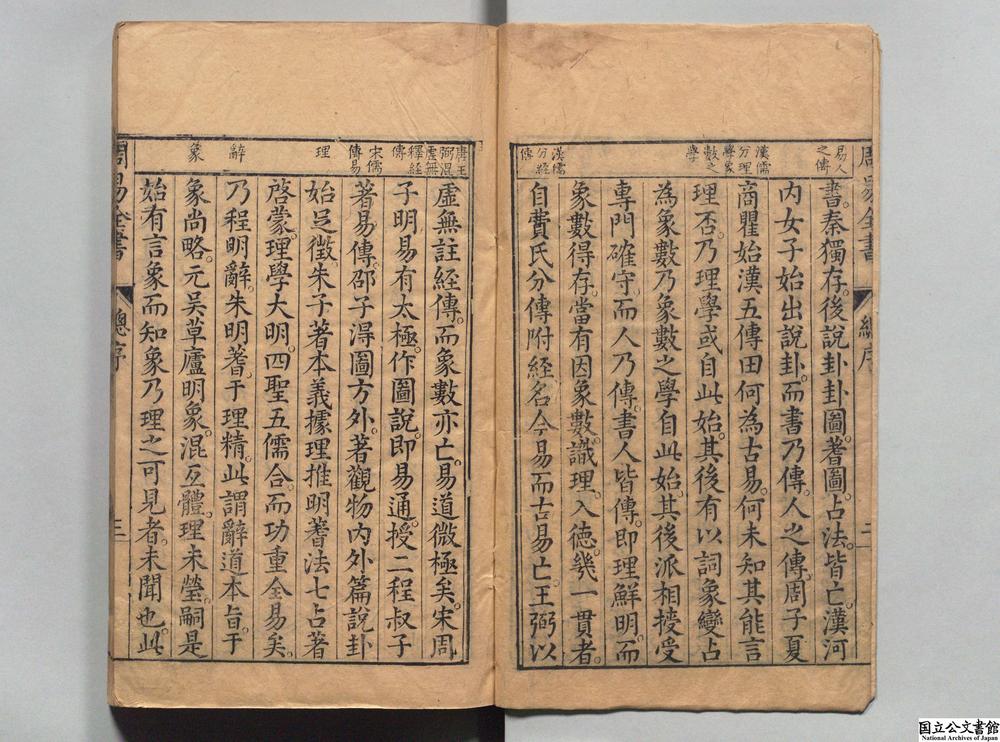 周易全書
總序
二
易人
之傳
漢儒
分理
學象
數之
學
漢儒
分經
傳
書。秦獨存。後說卦卦圖蓍圖。占法。皆亡。漢河
內女子始出說卦。而書乃傳。人之傳。周子夏
商瞿始漢五傳田何為古易。何未知其能言
理否。乃理學或自此始。其後有以詞象變占
為象數乃象數之學自此始。其後派相授受
專門確守。而人乃傳。書人皆傳。即理鮮明。而
象數得存。當有因象數。識理。入德。幾一貫者。
自費氏分傳附經名今易而古易亡。王弼以
唐王
弼混
虛無
釋經
傳
宋儒
傳易
理
辭
象
虛無註經傳。而象數亦亡。易道微極矣。宋周
子明易有太極。作圖說。即易通。授二程叔子
著易傳。邵子得圖方外。著觀物內外篇說卦
始足徵。朱子著本義據理推明蓍法七占著
啓蒙。理學大明。四聖五儒合。而功重全易矣。
乃程明辭。朱明蓍。于理精。此謂辭道本旨。于
象尚略。元吳草廬明象。混互體。理未瑩。嗣是
始有言象而知象乃理之可見者。未聞也。此
周易全書
總序
三
国立公文書館
National Archives of Japan